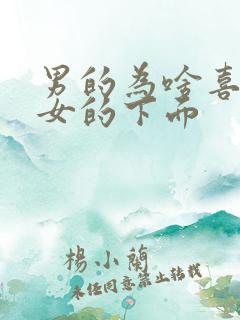 男的為啥喜
女的下面
楊小蘭
未经同意禁止转载